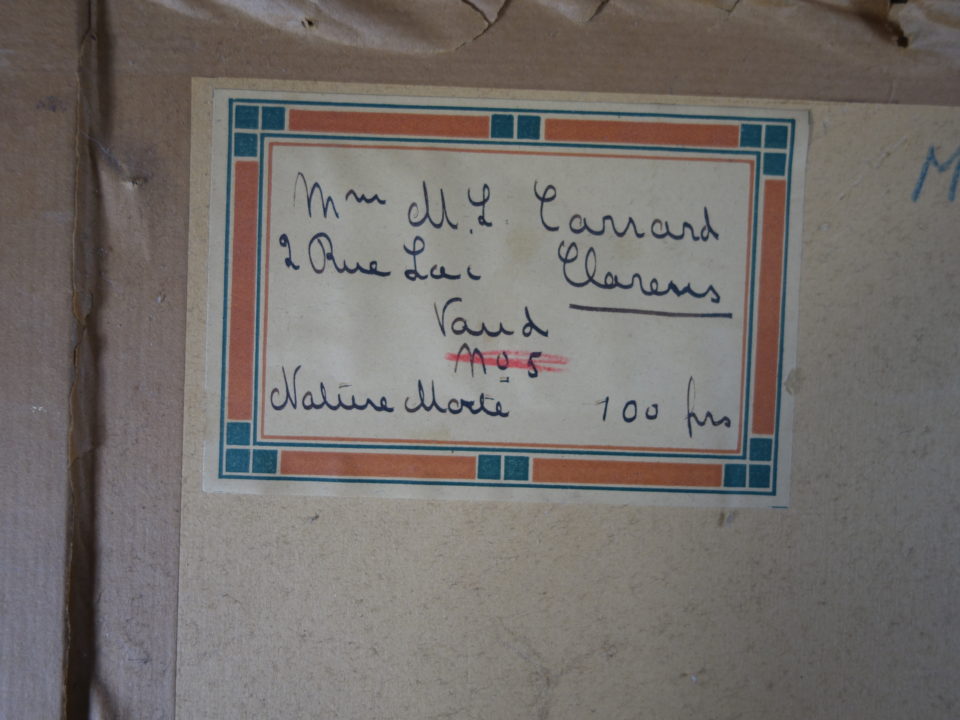 Mme M. L. Carrard
2 Rue Lac Clarens
Vaud
No 5
Nature Morte 100 frs
M